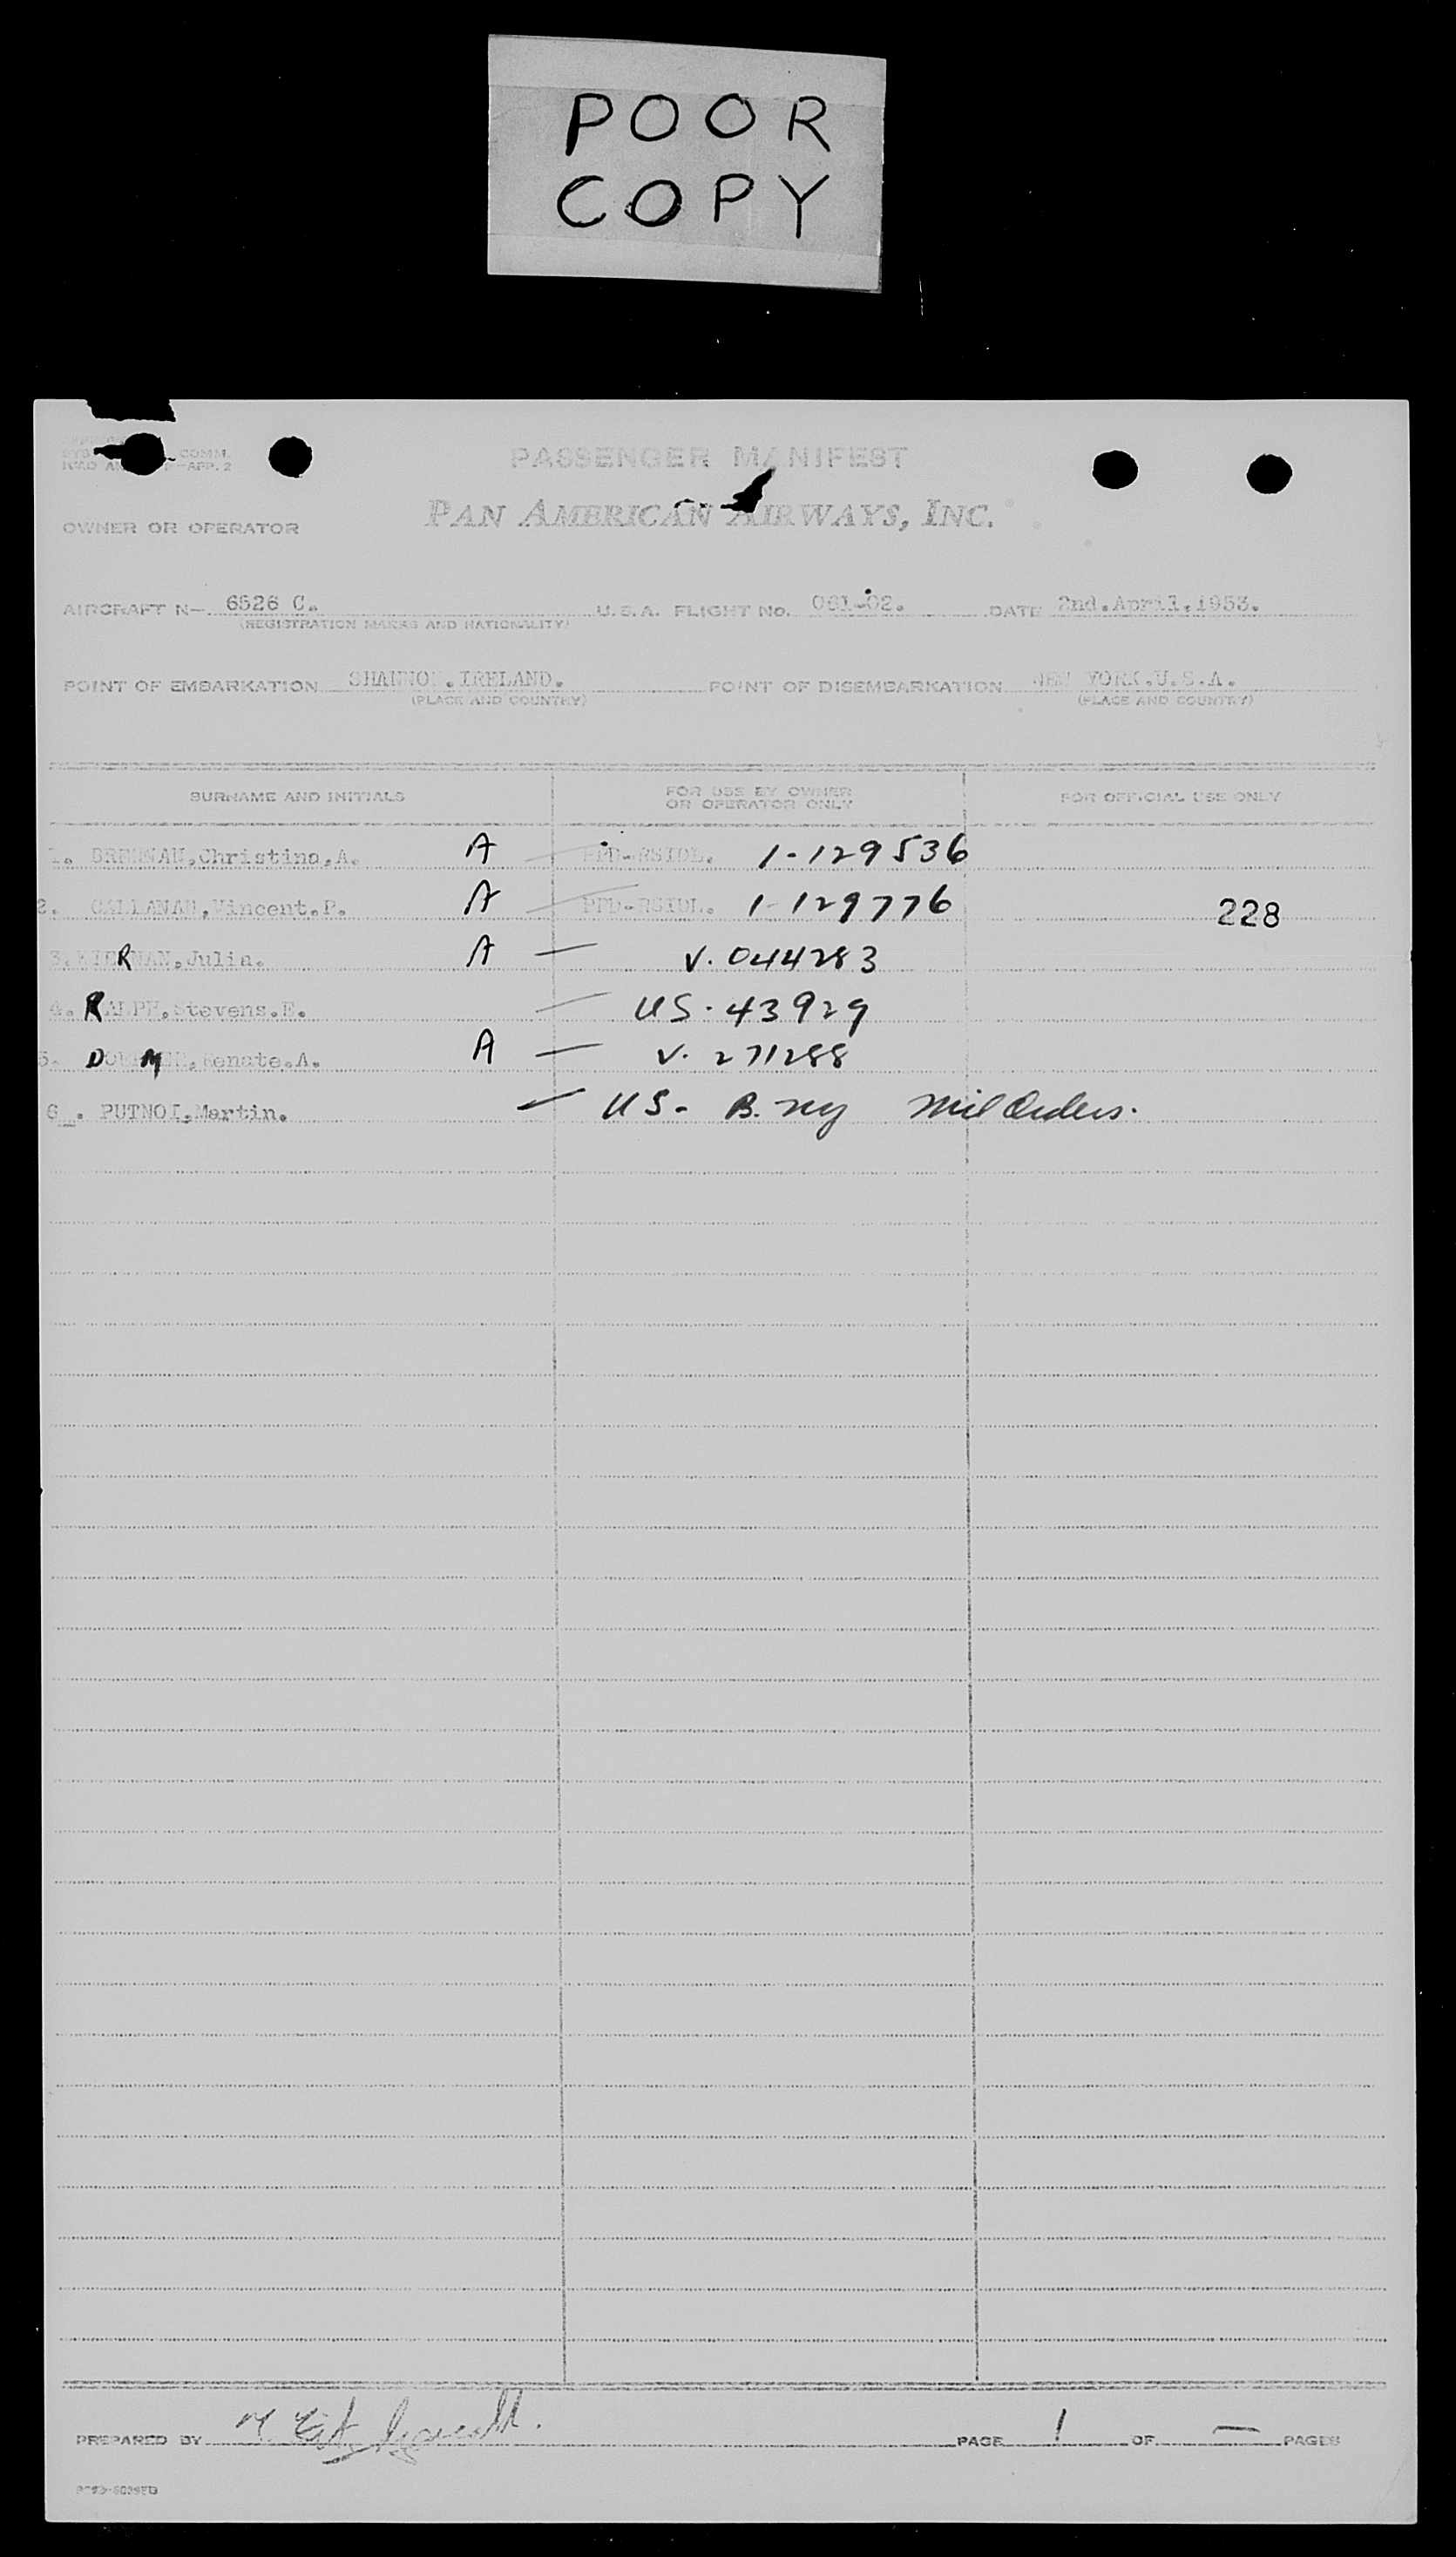 POOR
COPY
COMM.
-APP. 2
PASSENGER MANIFEST
OWNER OR OPERATOR
PAN AMERICAN AIRWAYS, INC.
AIRCRAFT N— 6526 C. U.S.A. FLIGHT No. 061-02. DATE 2nd.April.1953.
(REGISTRATION MARKS AND NATIONALITY)
POINT OF EMBARKATION SHANNON.IRELAND. POINT OF DISEMBARKATION NEW YORK.U.S.A.
(PLACE AND COUNTRY) (PLACE AND COUNTRY)
SURNAME AND INITIALS FOR USE BY OWNER OR OPERATOR ONLY FOR OFFICIAL USE ONLY
1. BRENNAN,Christina,A. A — PPD-RSIDL. 1-129536
2. CALLANAN,Vincent.P. A — PPD-RSIDL. 1-129776 228
3. KIERNAN,Julia. A — V. 044283
4. RALPH,Stevens.E. — US. 43929
5. Renate.A. A — V. 271288
6. PUTNOI,Martin. — US- B. ny Mil Orders.
PREPARED BY M. PAGE 1 OF — PAGES